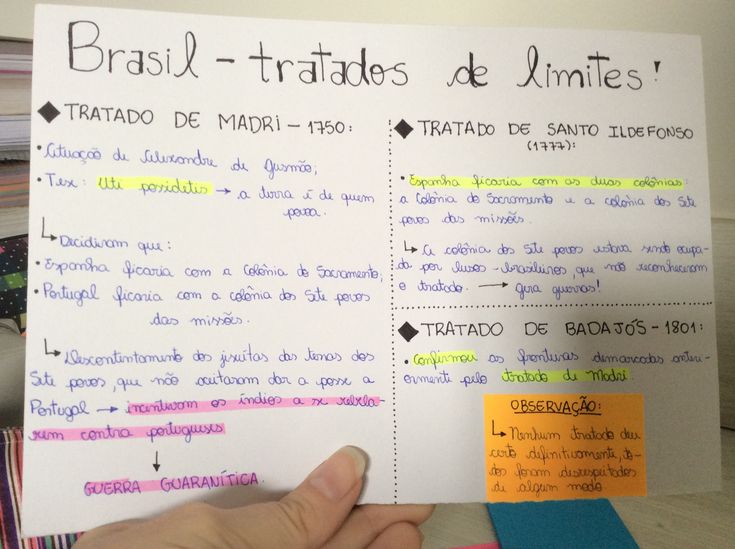 Brasil - tratados de limites!
◆ TRATADO DE MADRI - 1750:
• Atuação de Alexandre de Gusmão;
• Tex: Uti posidetis → a terra é de quem
povoa.
↳ Decidiram que:
• Espanha ficaria com a Colônia do Sacramento;
• Portugal ficaria com a colônia dos Sete povos
das missões.
↳ Descontentamento dos jesuítas das terras dos
Sete povos, que não aceitaram dar a posse a
Portugal → incentivam os índios a se rebela-
rem contra portugueses
↓
GUERRA GUARANÍTICA.
◆ TRATADO DE SANTO ILDEFONSO
(1777):
• Espanha ficaria com as duas colônias:
a Colônia do Sacramento e a colônia dos Sete
povos das missões.
↳ A colônia dos Sete povos estava sendo ocupa-
da por lusos-brasileiros, que não reconheceram
o tratado. → gera guerras!
◆ TRATADO DE BADAJÓS - 1801:
• Confirmou as fronteiras demarcadas anteri-
ormente pelo tratado de Madri.
OBSERVAÇÃO:
↳ Nenhum tratado deu
certo definitivamente, to-
dos foram desrespeitados
de algum modo.